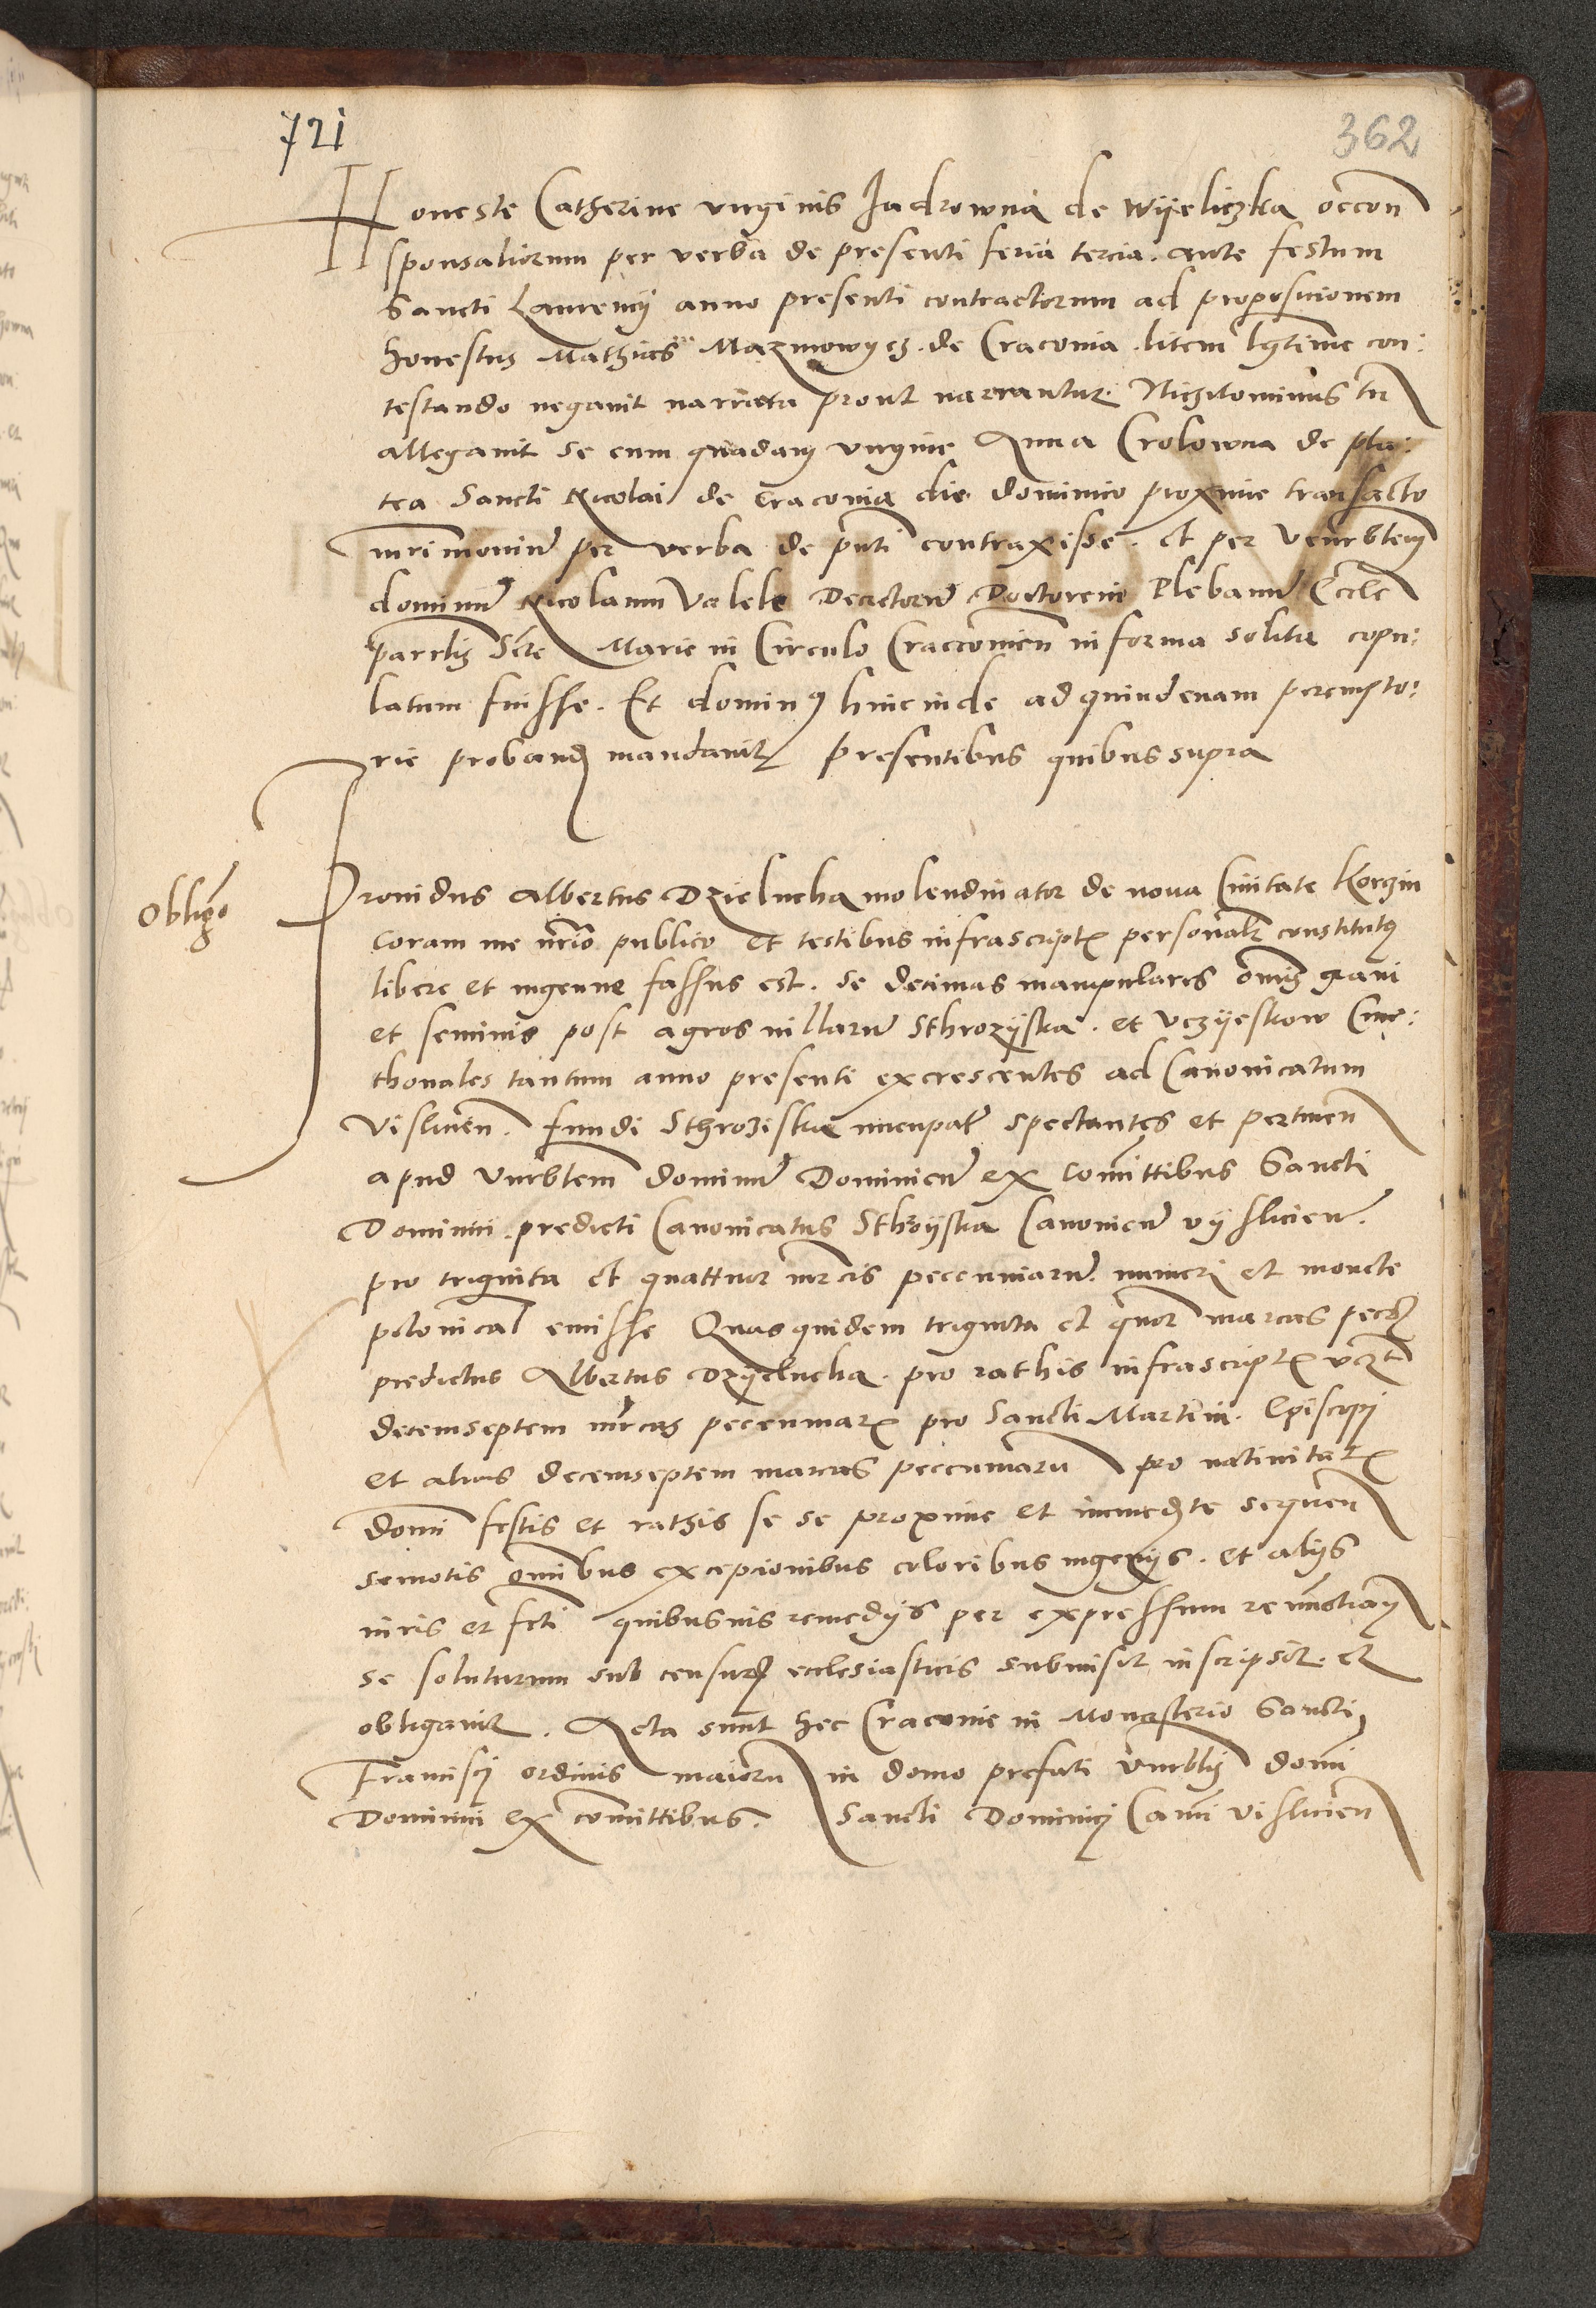 721
362
Honeste Catherine virginis Jadrowna de Wyeliczka occon
sponsaliorum per verba de presenti feria tercia ante festum
Sancti Laurencij anno presenti contractorum ad proposicionem
honestus Mathias Mazmowycz de Craconia litem lgtime con:
testando negavit narrata prout narrantur Nichilominus tn
allegavit se cum quadam virgine Anna Crolowna de pla:
tea Sancti Nicolai de Craconia die dominico proxime transacto
mrimoniu per verba de pnti contraxisse et per venerblem
dominu Nicolaum Decretoru Doctorem Plebanu Eccle
parrlis Scte Marie in Circulo Craccovien in forma solita copu:
latum fuisse. Et dominus hincinde ad quindenam perempto:
rie proband mandavit presentibus quibus supra
Obligo
Providus Albertus Dzielucha molendinator de nova Civitate Korczin
coram me nrio publico et testibus infrascriptis personalr constitutus
libere et ingenue fassus est. se decimas manipulares omis grani
et seminis post agros villaru Sthrozyska. et Uczyeskow Cme:
thonales tantum anno presenti excrescentes ad Canonicatum
Vislicien. fundi Sthroziska nuncupat spectantes et pertinen
apud Vnrblem dominu Dominicu ex Comittibus Sancti
Dominici predicti Canonicatus Canonicu vyslicien
pro triginta et quattuor mrcis peccuniaru numeri et monete
polonical emisse Quasquidem triginta et quor marcas pecc
predictus Albertus Dzyelucha pro rathis infrascriptis vczt
decemseptem mrcas peccuniar pro Sancti Martini Episcopi
et alias decemseptem marcas peccuniaru pro nativitatis
domi festis et rathis se se proxime et immedte sequen
semotis omibus excepcionibus coloribus ingenijs. et alijs
iuris et fcti quibusvis remedijs per expressum renuncians
se soluturum sub censuris ecclesiasticis submisit inscripsit et
obligavit. Acta sunt hec Craconie in Monasterio Sancti
Francisci ordinis maioru in domo prefati Vnrblis domi
Dominici ex comittibus. Sancti Dominici Cani vislicien